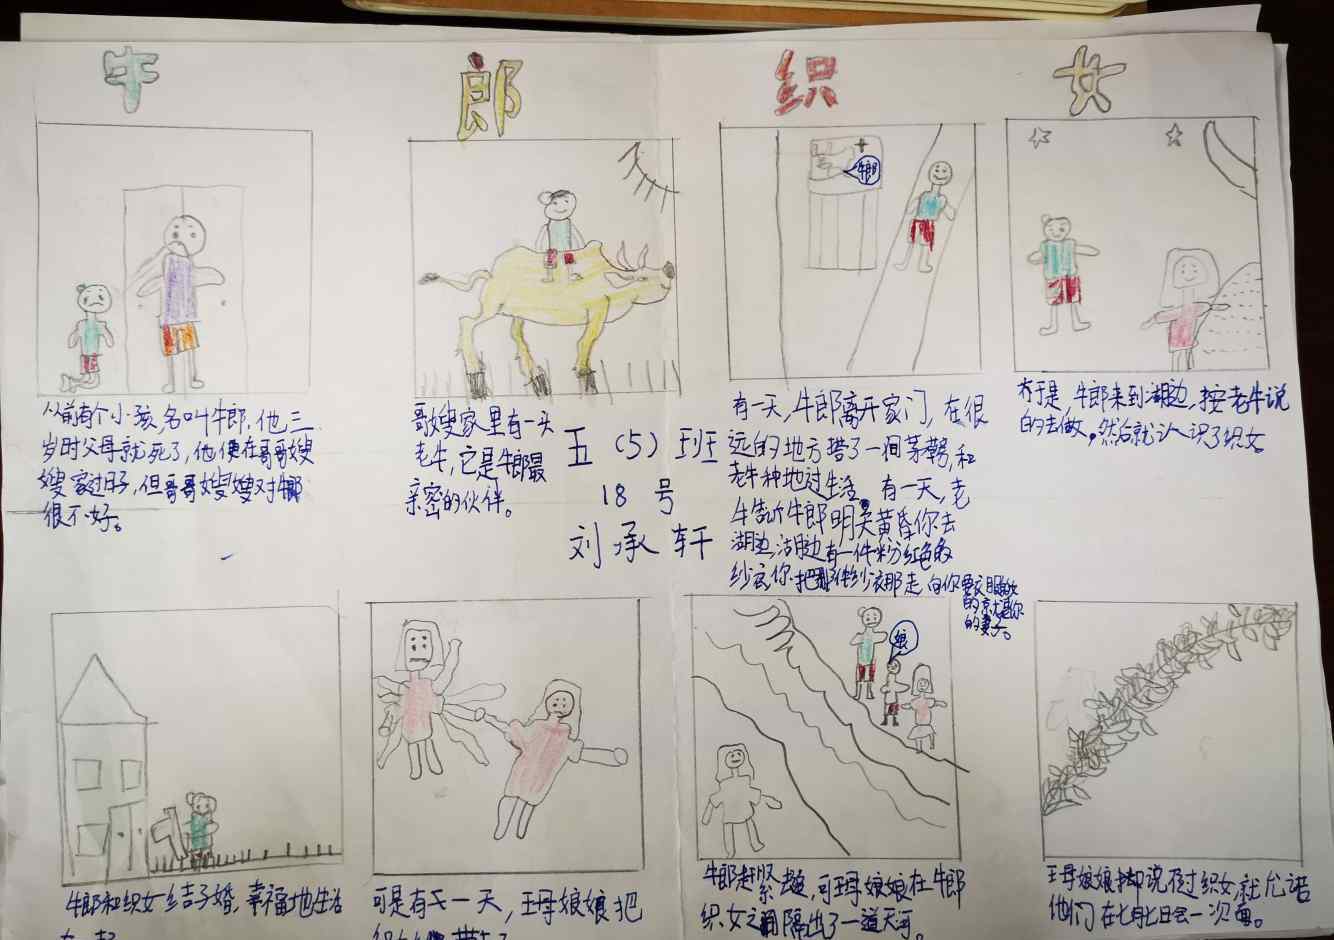 牛 郎 织 女
牛郎
从前有个小孩,名叫牛郎.他三
岁时父母就死了,他便在哥哥嫂
嫂家过日子,但哥哥嫂嫂对牛郎
很不好。
哥嫂家里有一头
老牛,它是牛郎最
亲密的伙伴。
五(5)班
18 号
刘承轩
有一天,牛郎离开家门,在很
远的地方搭了一间茅
老牛种地过生活。有一天,老
牛告诉牛郎明天黄昏你去
湖边,湖边有一件粉红色的
纱衣你把那件纱衣那走,向你要衣服的女
的就是你
的妻子。
于是,牛郎来到湖边,按老牛说
的去做,然后就认识了织女。
娘
牛郎和织女结了婚,幸福地生活
可是有一天,王母娘娘把
牛郎赶紧追,可王母娘娘在牛郎
织女之间隔出了一道天河。
王母娘娘拗说不过织女,就允诺
他们在七月七日会一次面。